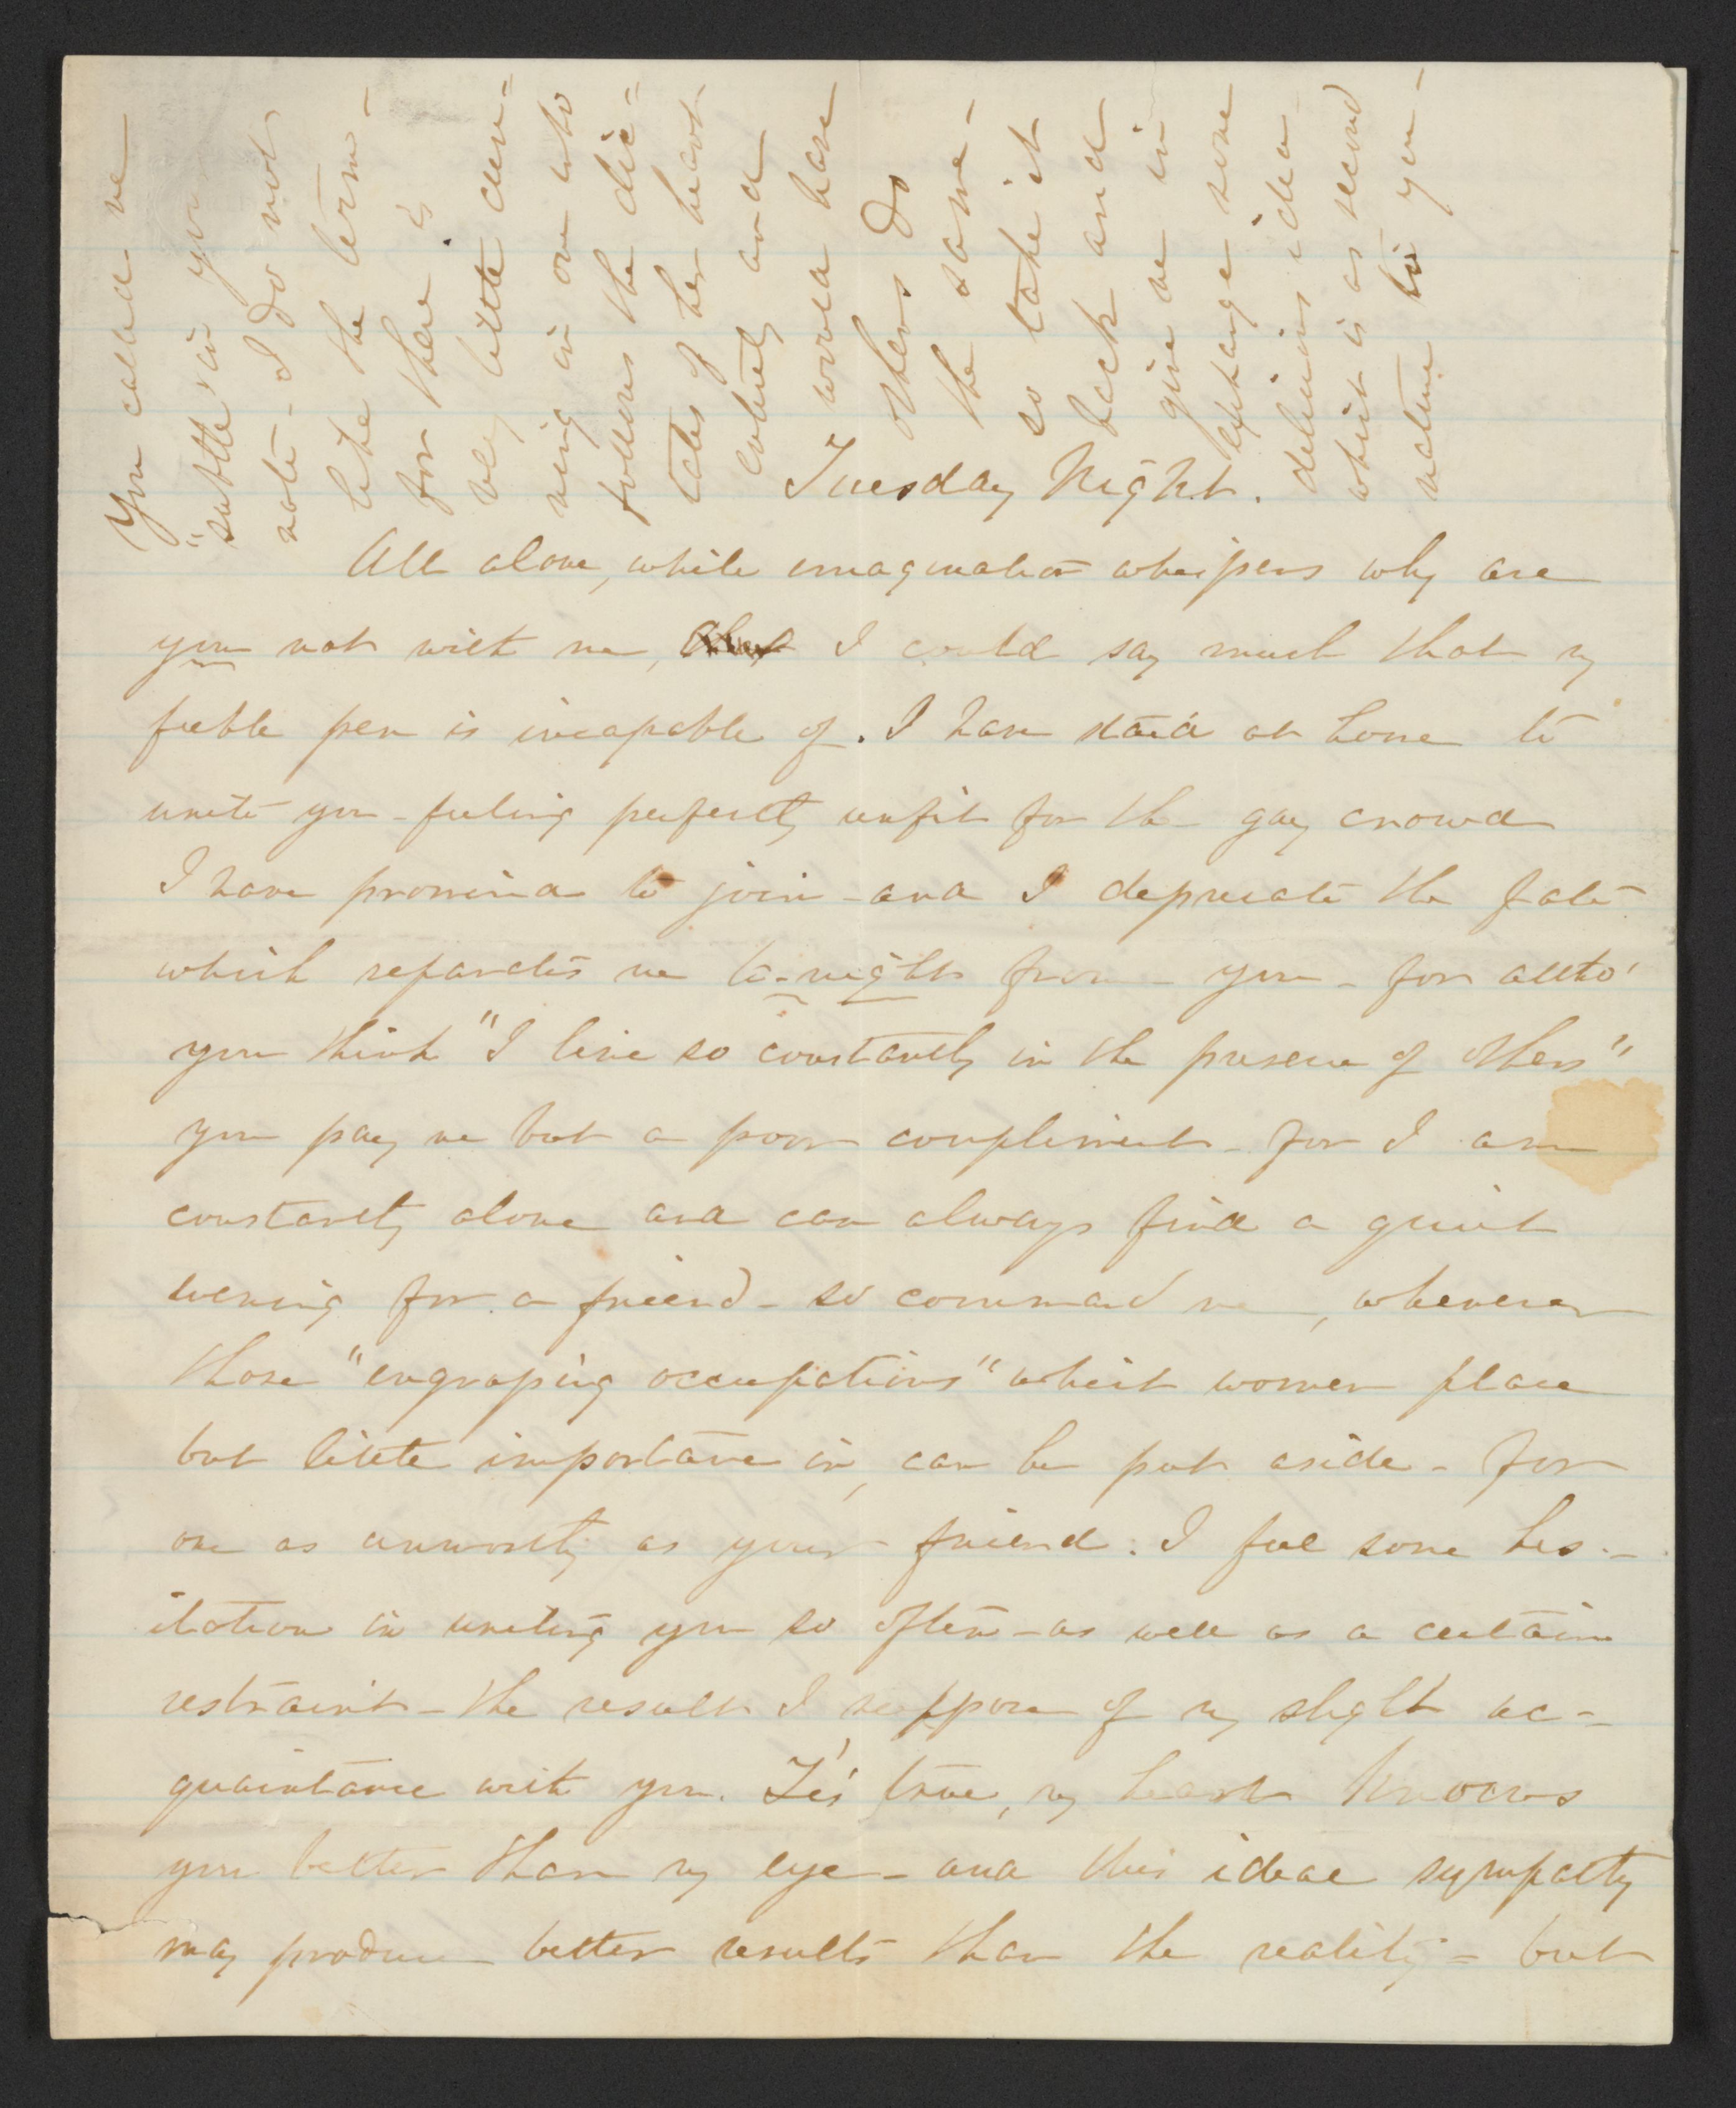 Tuesday Night.
All alone, while imagination whispers why are
you not with me, I could say much that my
feeble pen is incapable of. I have staid at home to
write you - feeling perfectly unfit for the gay crowd
I have promised to join - and I depreciate the fate
which separates me to-night from you - for altho'
you think "I live so constantly in the presence of others"
you pay me but a poor compliment - for I am
constantly alone and can always find a quiet
evening for a friend - so command me, whenever
those "engrossing occupations" which women place
but little importance in, can be put aside - for
one as unworthy as your friend. I feel some hes-
itation in writing you so often - as well as a certain
restraint - the result I suppose of my slight ac-
quaintance with you. Tis' true, my heart knows
you better than my eye - and this ideal sympathy
may produce better results than the reality - but
You called me
"subtle" in your
note - I do not
like the term -
for there is
very little cun-
ning in one who
follows the dic-
tates of her heart
entirely and
would have
others do
the same -
so take it
back and
give me in
exchange some
delicious idea
which is as second
nature to you -